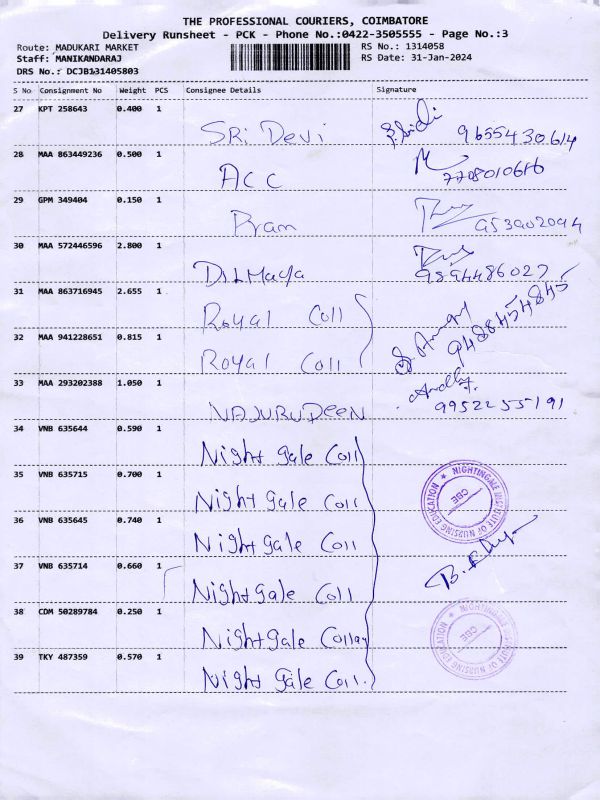 THE PROFESSIONAL COURIERS, COIMBATORE
Delivery Runsheet - PCK - Phone No.:0422-3505555 - Page No.:3
Route: MADUKARI MARKET RS No.: 1314058
Staff: MANIKANDARAJ RS Date: 31-Jan-2024
DRS No.: DCJB131405803
S No Consignment No Weight PCS Consignee Details Signature
27 KPT 258643 0.400 1
SRi Devi 9655430614
28 MAA 863449236 0.500 1
ACC 7708010616
29 GPM 349404 0.150 1
953902094
30 MAA 572446596 2.800 1
9894486027
31 MAA 863716945 2.655 1
Royal Coll
9488454845
32 MAA 941228651 0.815 1
Royal Coll
33 MAA 293202388 1.050 1
NAJURUDEEN 9952255191
34 VNB 635644 0.590 1
Night gale Coll
35 VNB 635715 0.700 1
Night gale Coll
NIGHTINGALE INSTITUTE OF NURSING EDUCATION
CBE
36 VNB 635645 0.740 1
Night gale Coll
37 VNB 635714 0.660 1
Night gale Coll
38 CDM 50289784 0.250 1
Night gale
NIGHTINGALE INSTITUTE OF NURSING EDUCATION
CBE
39 TKY 487359 0.570 1
Night gale Coll.